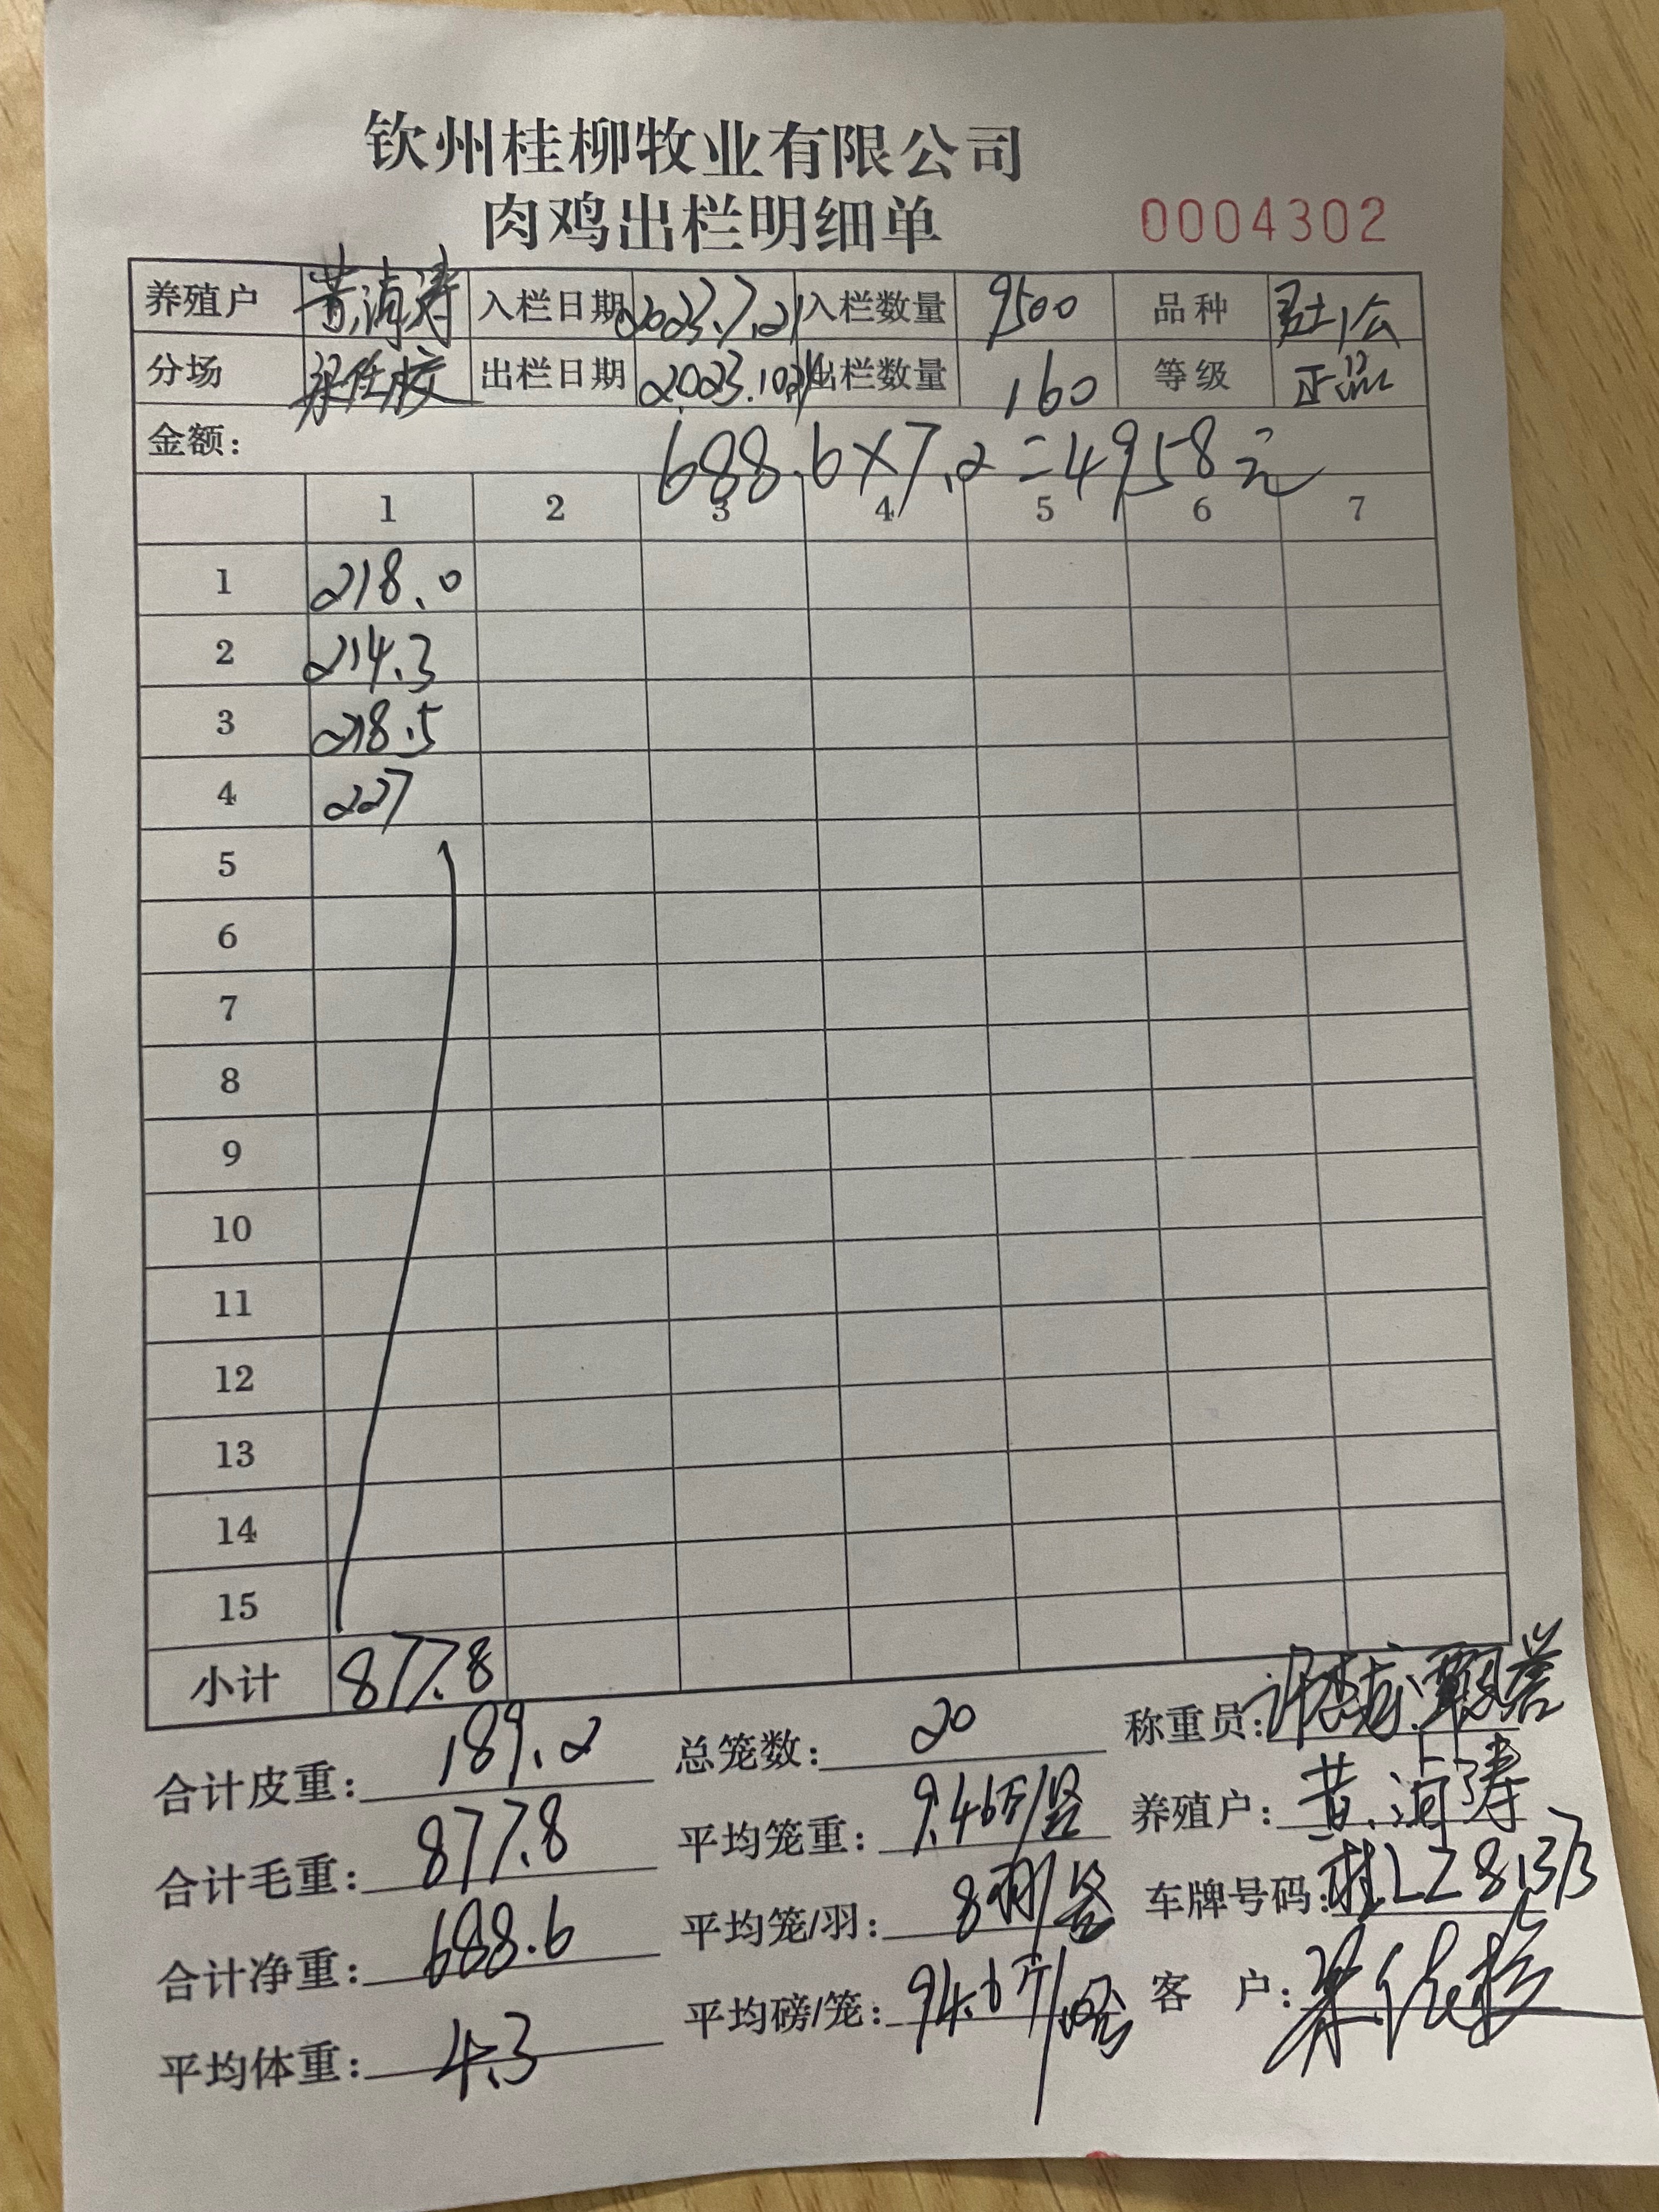 钦州桂柳牧业有限公司
肉鸡出栏明细单 0004302
养殖户 黄 涛 入栏日期 2023.7.21 入栏数量 9500 品种 公
分场 出栏日期 2023.10.21 出栏数量 160 等级 正品
金额: 688.6×7.2=4958元
1 2 3 4 5 6 7
1 218.0
2 214.3
3 218.5
4 227
5
6
7
8
9
10
11
12
13
14
15
小计 877.8
合计皮重: 189.2 总笼数: 20 称重员:
合计毛重: 877.8 平均笼重: 9.46斤/ 养殖户: 黄 涛
合计净重: 688.6 平均笼/羽: 8羽/ 车牌号码: 桂LZ8133
平均体重: 4.3 平均磅/笼: 94.6斤/ 客 户: